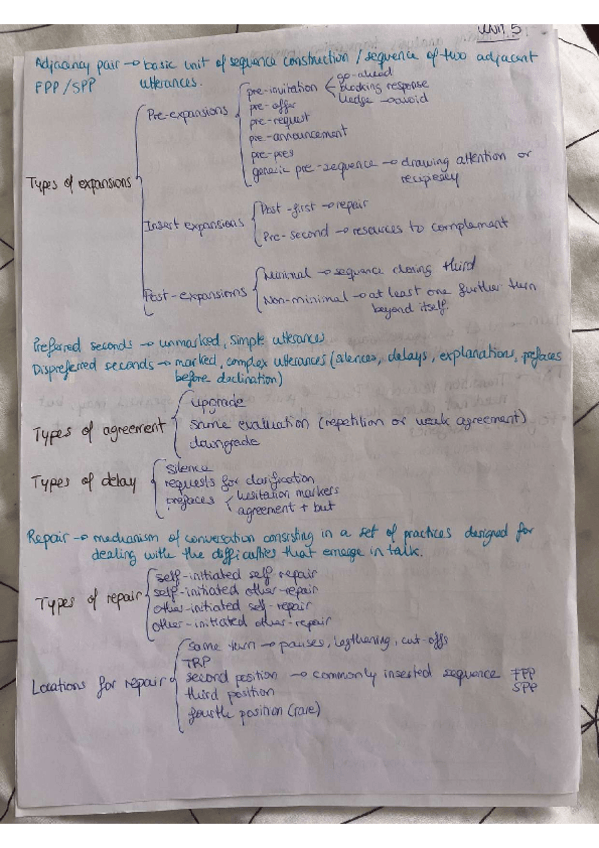 UNIT 5
Adjacency pair → basic unit of sequence construction / sequence of two adjacent
FPP / SPP utterances.
Types of expansions
Pre-expansions
pre-invitation
go-ahead
blocking response
hedge → avoid
pre-offer
pre-request
pre-announcement
pre-pres
generic pre-sequence → drawing attention or
recipiency
Insert expansions
Post-first → repair
Pre-second → resources to complement
Post-expansions
Minimal → sequence closing third
Non-minimal → at least one further turn
beyond itself.
Preferred seconds → unmarked, simple utterances.
Dispreferred seconds → marked, complex utterances (silences, delays, explanations, prefaces
before declination)
Types of agreement
upgrade
same evaluation (repetition or weak agreement)
downgrade
Types of delay
silence
requests for clarification
prefaces
hesitation markers
agreement + but
Repair → mechanism of conversation consisting in a set of practices designed for
dealing with the difficulties that emerge in talk.
Types of repair
self-initiated self repair
self-initiated other-repair
other-initiated self-repair
other-initiated other-repair
Locations for repair
same turn → pauses, lengthening, cut-offs
TRP
second position → commonly inserted sequence FPP
SPP
third position
fourth position (rare)